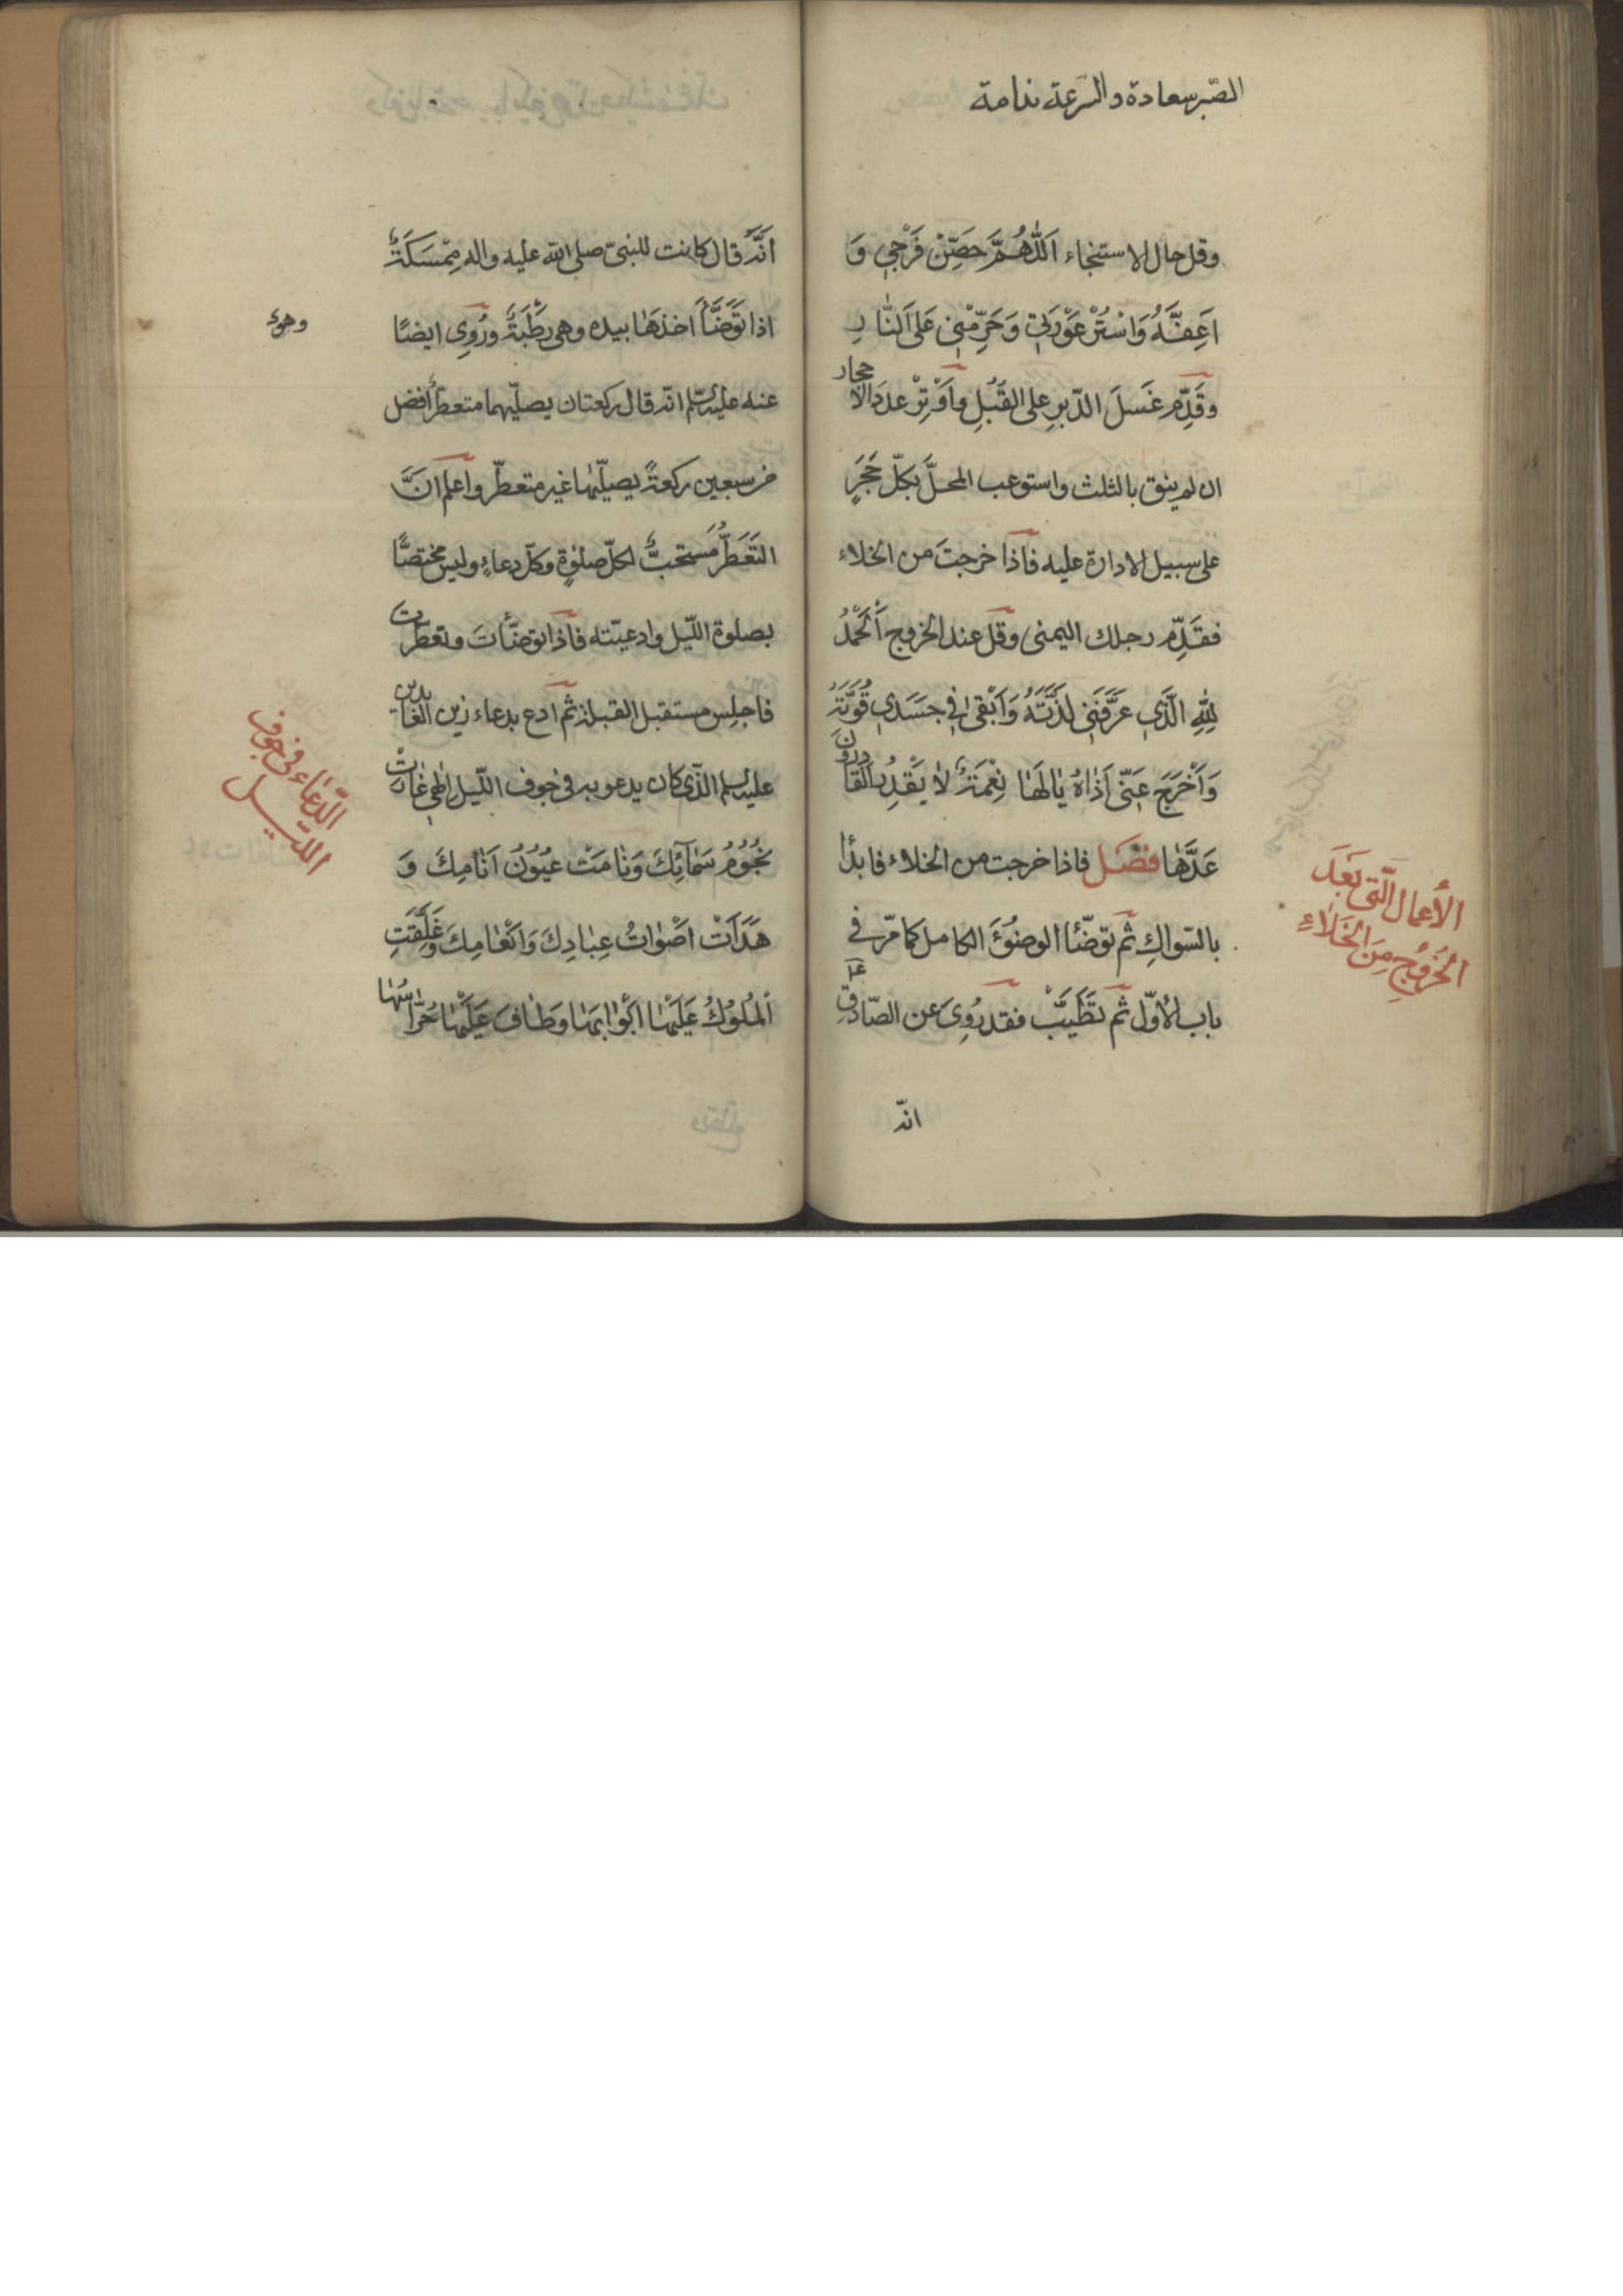 الصّبر سعادة والسّرعة ندامة
وقل حال الاستنجاء اَللّٰهُمَّ حَصِّنْ فَرْجِي وَ
اَعِفَّهُ وَاسْتُرْ عَوْرَتِي وَحَرِّمْنِي عَلَى النَّارِ
وقَدِّم غَسلَ الدّبرِ على القُبُلِ وأَوْتِرْ عددَ الاحجار
ان لم ينق بالثلث واستوعب المحلَّ بكلّ حَجَرٍ
على سبيل الادارة عليه فاذا خرجتَ من الخلاء
فقَدِّم رجلك اليمنى وقل عند الخروج اَلْحَمْدُ
لِلّٰهِ الَّذِي عَرَّفَنِي لَذَّتَهُ وَاَبْقٰى فِي جَسَدِي قُوَّتَهُ
وَاَخْرَجَ عَنّي اَذٰاهُ يٰالَهٰا نِعْمَةً لٰا يَقْدِرُ القٰادِرُونَ
قَدْرَهٰا فصَل فاذا خرجت من الخلاء فابدٲ
بالسّواكِ ثم توضّئا الوضوُءَ الكامل كما مرّ في
باب الاوّل ثم تَطَيَّبْ فقد رُوِيَ عن الصّادقِ ع
الأعمال الّتي بَعَدَ
الخُرُوجِ مِنَ الخَلَاءِ
انّه
اَنَّه قال كانت للنبيّ صلى اللّه عليه واله مِمْسَكَةٌ
اذا تَوَضَّأَ اخذهٰا بيده وهي رَطْبَةٌ ورُوِي ايضًا
وهوئ
عنه عليه السّلم انّه قال ركعتان يصليّهما متعطّرٌ أفضل
من سبعين ركعةً يصلّيها غير متعطّر واعلم انَّ
التَعَطّرَ مُستحبٌّ لكلّ صلوٰةٍ وكلّ دعاءٍ وليس مختصًّا
بصلوة اللّيل وادعيّته فاذا توضّأتَ وتعطّرت
فاجلِس مستقبل القبلة ثم ادع بدعاء زين العٰابدين
عليه السلم الذّي كان يدعو به في جوف اللّيل اِلٰهي غٰارَتْ
نُجُوُمُ سَمٰآئِكَ وَنٰامَتْ عُيُوُنُ اَنٰامِكَ وَ
هَدَأَتْ اَصْوٰاتُ عِبٰادِكَ وَاَنْعٰامِكَ وَغَلَّقَتِ
اَلْمُلُوُكُ عَلَيْهٰا اَبْوٰابَهٰا وَطٰافَ عَلَيْهٰا حُرّٰاسُهٰا
الدّعَاء في جوف
اللّيل